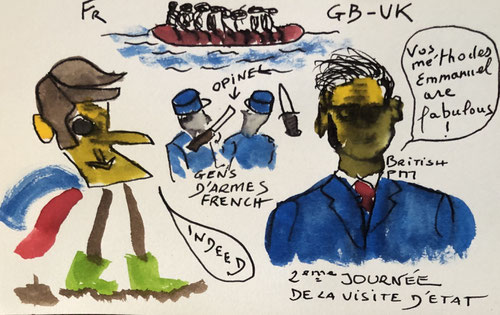 FR
GB-UK
OPINEL
Vos
méthodes
Emmanuel
are
fabulous
!
GENS
D'ARMES
FRENCH
BRITISH
PM
INDEED
2ème JOURNÉE
DE LA VISITE D'ETAT